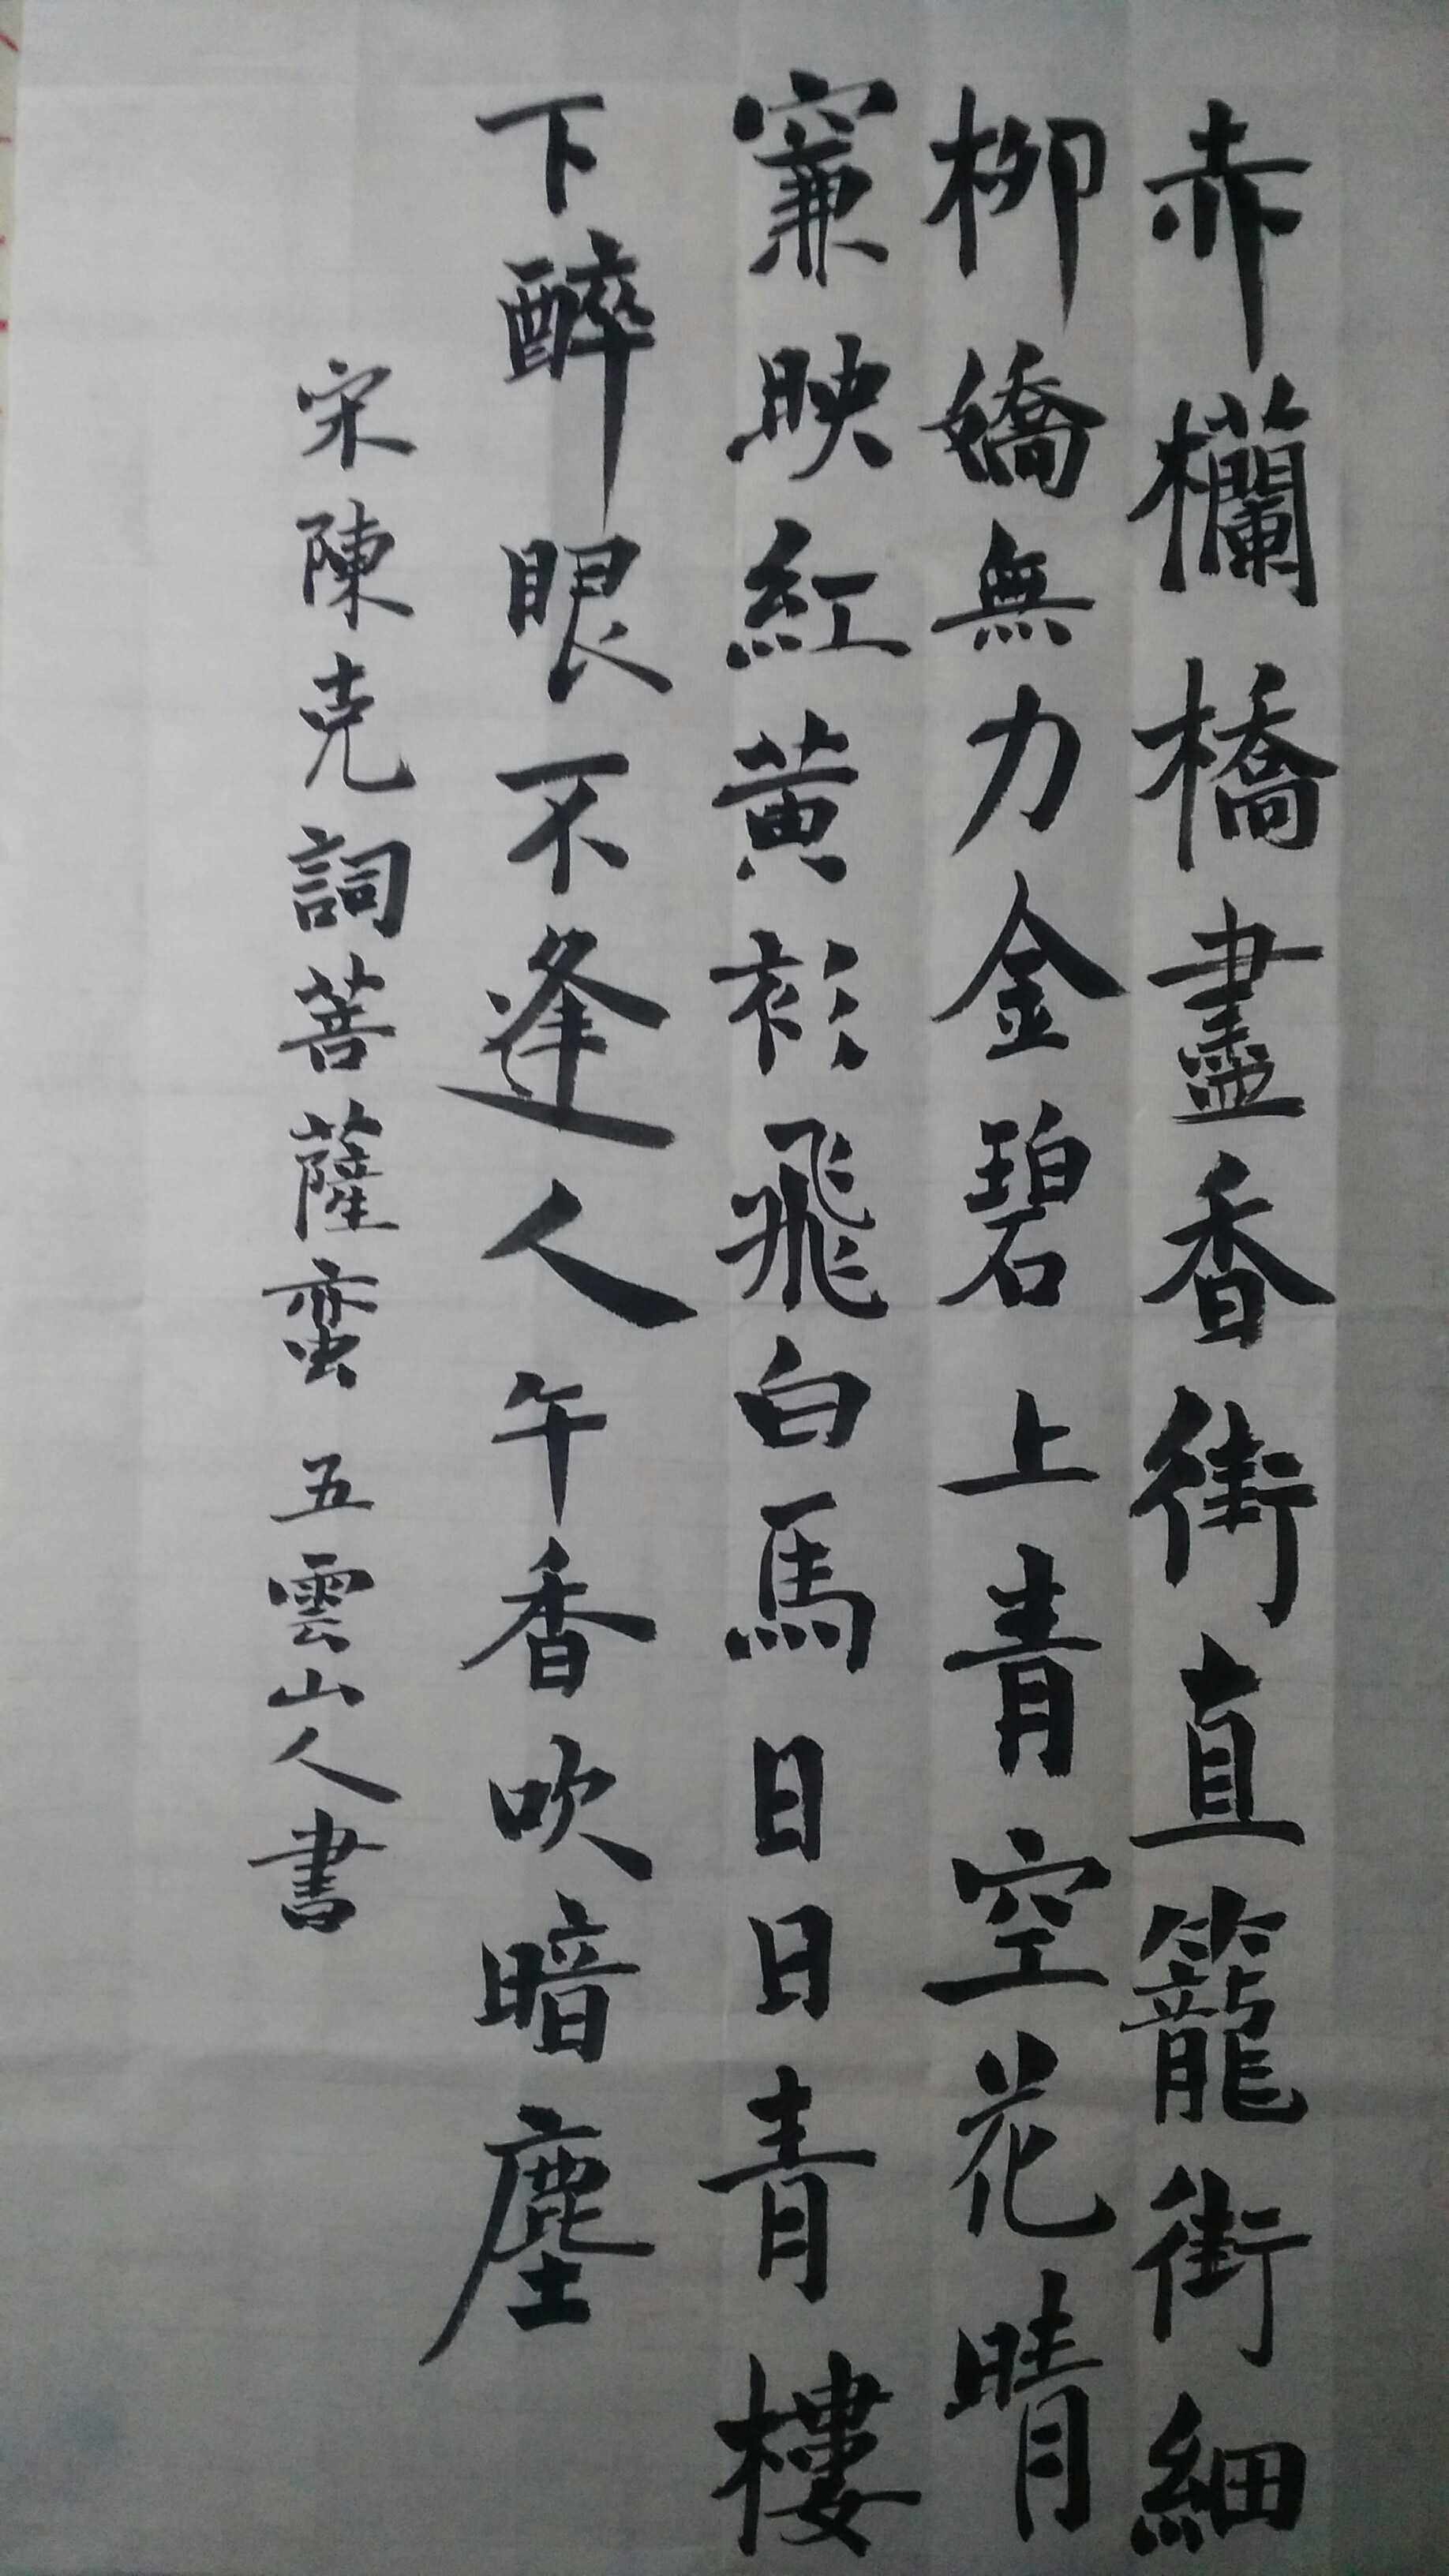 赤欄橋盡香街直籠街細
柳嬌無力金碧上青空花晴
簾映紅黄衫飛白馬日日青樓
下醉眼不逢人午香吹暗塵
宋陳克詞菩薩蛮 五雲山人書